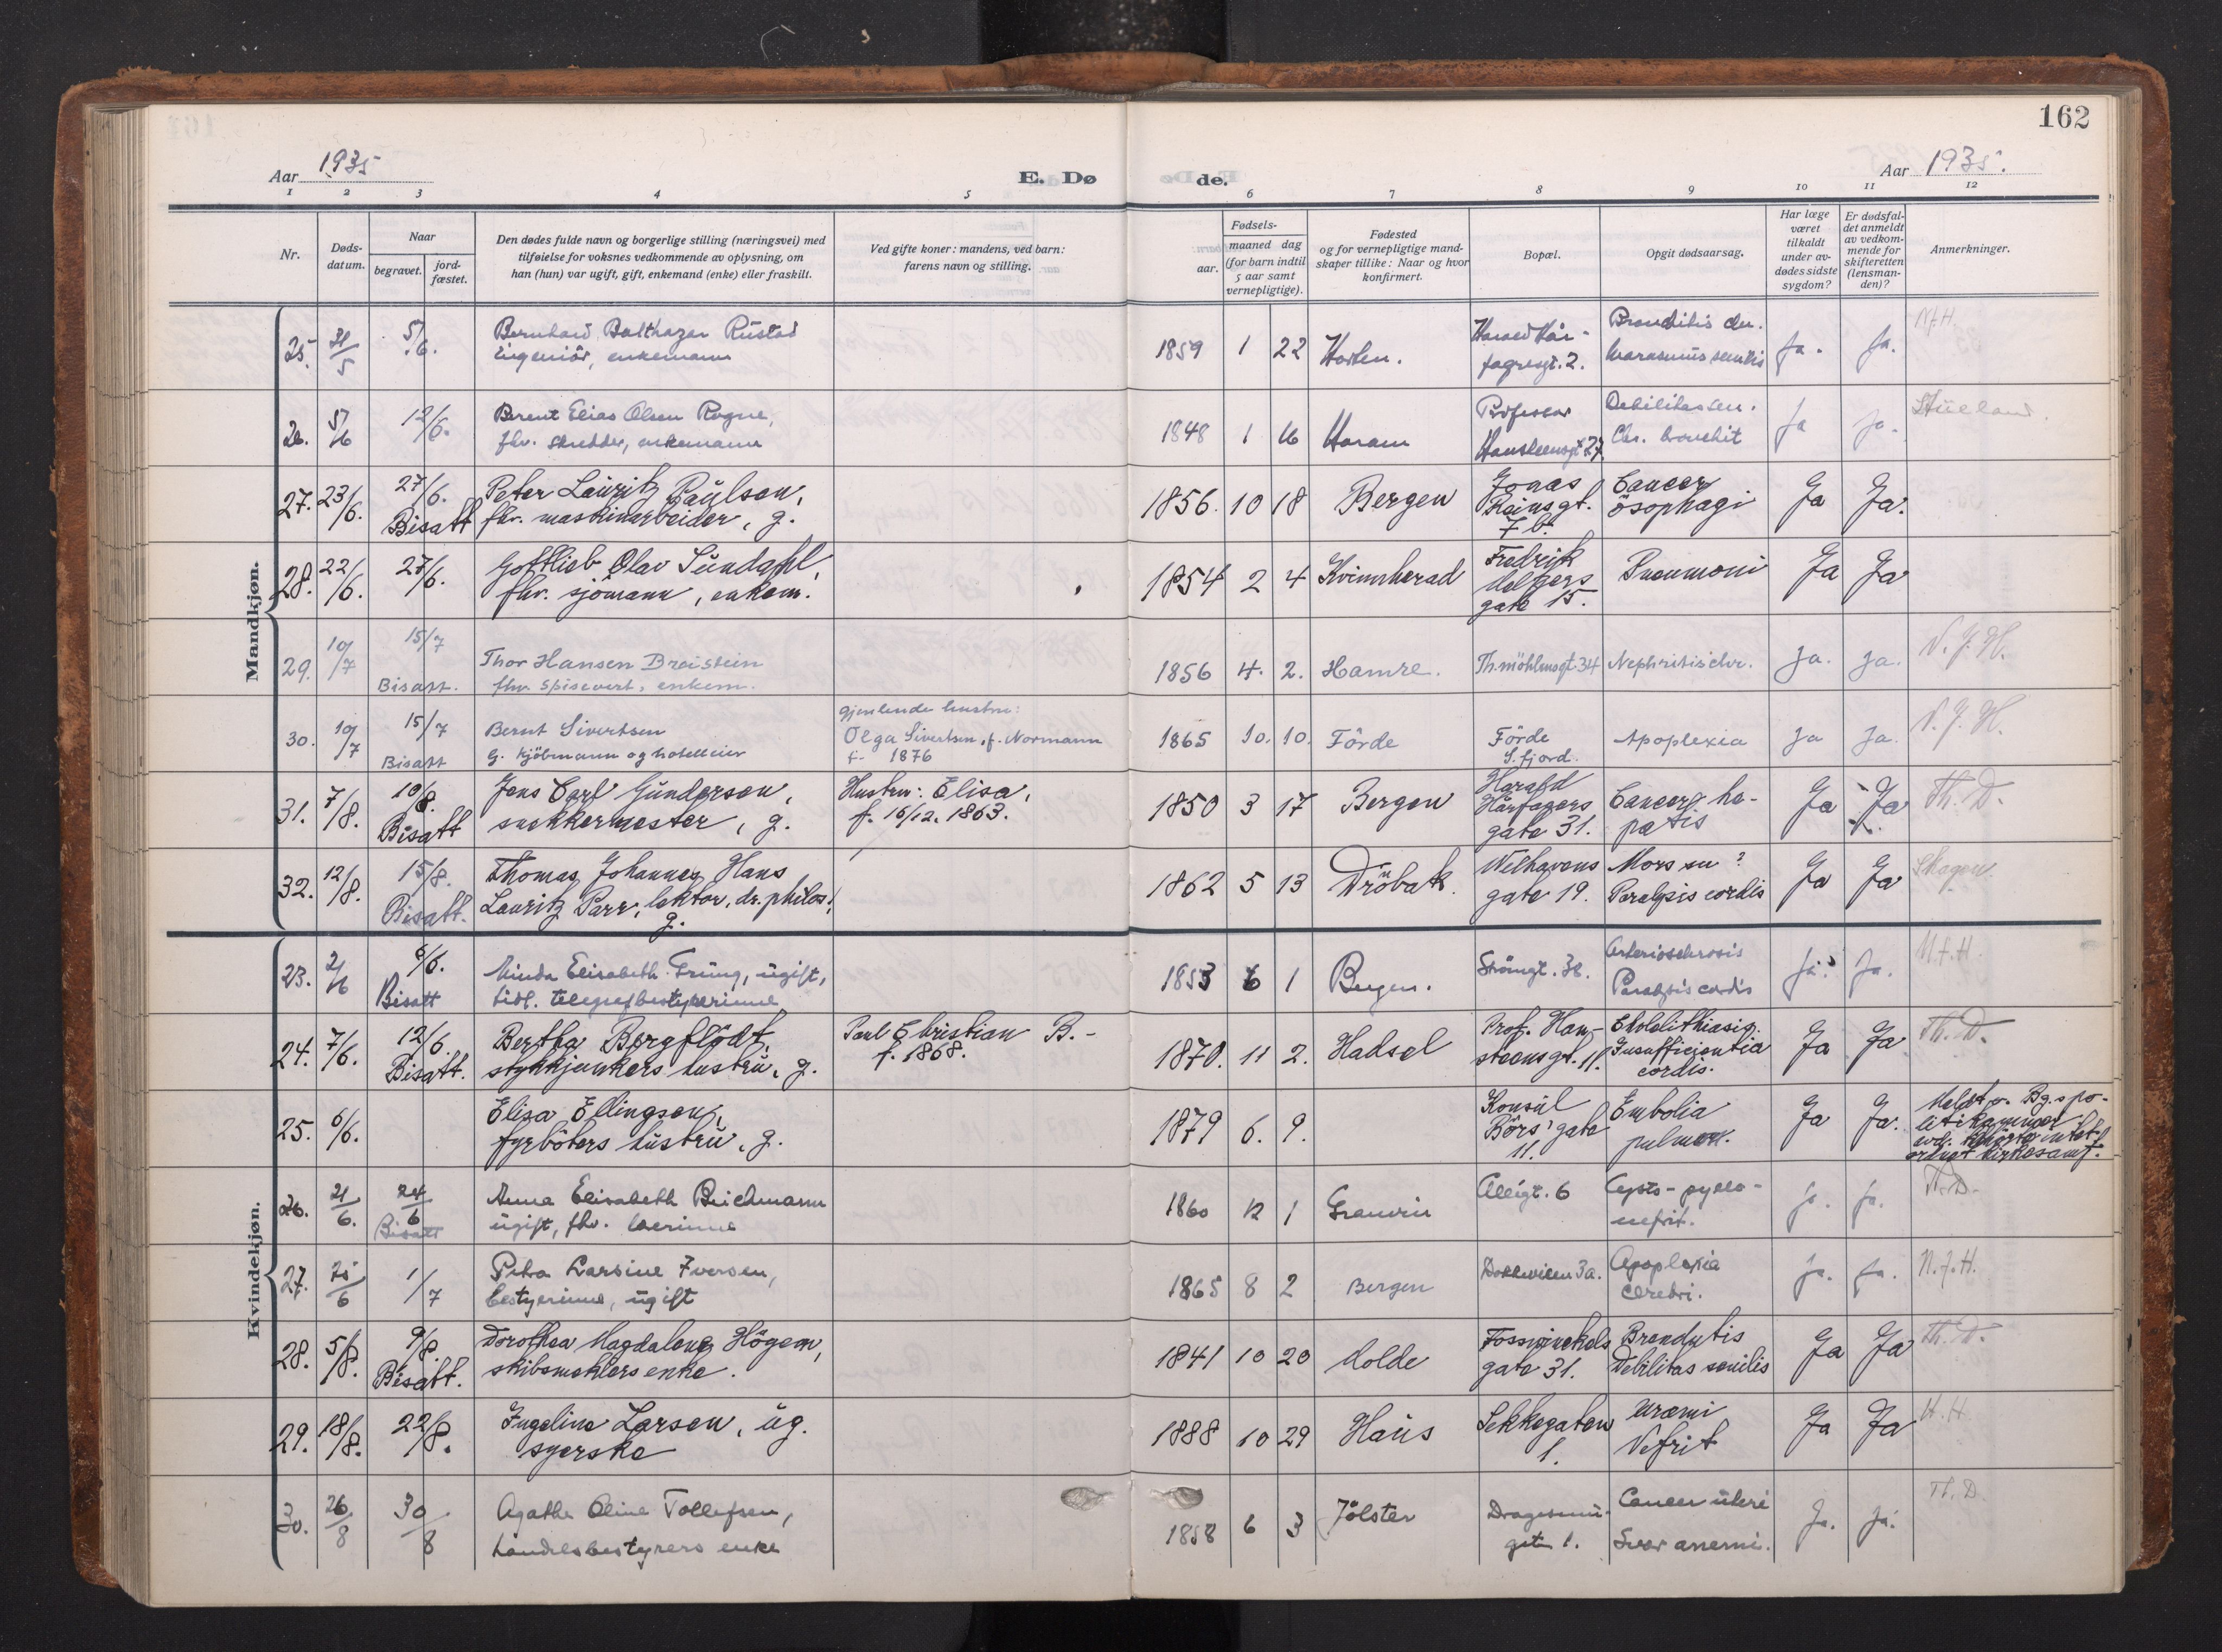 162
Aar 1935
E. Dø
de.
Aar 1935.
1 2 3 4 5 6 7 8 9 10 11 12
Nr.
Døds-
datum.
Naar
begravet.
jord-
fæstet.
Den dødes fulde navn og borgerlige stilling (næringsvei) med
tilføielse for voksnes vedkommende av oplysning, om
han (hun) var ugift, gift, enkemand (enke) eller fraskilt.
Ved gifte koner: mandens, ved barn:
farens navn og stilling.
Fødsels-
aar.
maaned dag
(for barn indtil
5 aar samt
vernepligtige).
Fødested
og for vernepligtige mand-
skaper tillike: Naar og hvor
konfirmert.
Bopæl.
Opgit dødsaarsag.
Har læge
været
tilkaldt
under av-
dødes sidste
sygdom?
Er dødsfal-
det anmeldt
av vedkom-
mende for
skifteretten
(lensman-
den)?
Anmerkninger.
Mandkjøn.
25. 31/5 5/6. Bernhard Balthazar Rustad
ingeniör, enkemann
1859 1 22 Horten. Harald Hår-
fagresgt. 2. marasmus senilis Ja. Ja. N.J.H.
26. 5/6 12/6. Berent Elias Olsen Rogne,
fhv. skredder, enkemann
1848 1 16 Haram Professor
Hansteensgt 27. Debilitas sen.
Chr. bronchit Ja Ja.
27. 23/6. 27/6. Bisatt Peter Lauritz Paulsen,
fhv. maskinarbeider, g.
1856. 10 18 Bergen Jonas
Reinsgt.
7 b. Cancer
ösophagi Ja Ja.
28. 22/6. 27/6. Gottlieb Olav Sundahl,
fhv. sjömann, enkem.
1854 2 4 Kvinnherad Fredrik
Meltzers
gate 15. Pneumoni Ja Ja
29. 10/7 15/7 Bisatt. Thor Hansen Breistein
fhv. spisevert, enkem.
1856 4. 2. Hamre. Th. möhlensgt 34 Nephritis chr. Ja. Ja. N. J. H.
30. 10/7 15/7 Bisatt Bernt Sivertsen
G. kjöbmann og hotelleier
Gjenlevende hustru:
Olga Sivertsen, f. Normann
f. 1876
1865 10. 10. Förde Förde
S. fjord. Apoplexia Ja Ja. N. J. H.
31. 7/8. 10/8. Bisatt Jens Carl Gundersen,
snekkermester, g.
Hustru: Elisa,
f. 16/12. 1863.
1850 3 17 Bergen Harald
Hårfagers
gate 31. Cancer he-
patis Ja Ja Th. D.
32. 12/8. 15/8. Bisatt. Thomas Johannes Hans
Lauritz Parr, lektor, dr. philos.,
g.
1862 5 13 Dröbak. Welhavens
gate 19. Mors su ?
Paralysis cordis Ja Ja Skagen
Kvindekjøn.
23. 2/6 6/6. Bisatt Minda Elisabeth Grung, ugift,
tidl. telegrafbestyrerinne
1853 6 1 Bergen. Strängt. 32. Arteriosclerosis
Paralysis cordis Ja. Ja. N.J.H.
24. 7/6. 12/6. Bisatt. Bertha Bergflödt,
stykkjunkers hustru, g.
Paul Christian B. -
f. 1868.
1870. 11 2. Hadsel Prof. Han-
steensgt. 11. Cholelithiasis.
Insufficientia
cordis. Ja Ja Th. D.
25. 6/6. Elisa Ellingsen,
fyrböters hustru, g.
1879 6. 9. Konsul
Börs' gate
11. Embolia
pulmon. Ja Ja. Meldt o. Bg.s po-
litikammer
avd. tilhörte intet
ordnet kirkesamf.
26. 21/6. 24/6 Bisatt Anna Elisabeth Beichmann
ugift, fhv. lærerinne
1860 12 1 Granvin Allégt. 6 Cysto-pyelo-
nefrit. ja. ja. Th. D.
27. 25/6 1/7 Petra Larsine Iversen,
bestyrerinne, ugift
1865 8 2 Bergen Dokkeveien 3a. Apoplexia
cerebri. ja. ja. N.J.H.
28. 5/8. 9/8. Bisatt. Dorothea Magdalena Högem,
skibsmeklers enke.
1841 10 20 Molde Fosswinckels
gate 31. Bronchitis
Debilitas senilis Ja Ja Th. D.
29. 18/8. 22/8. Ingeline Larsen, ug.
syerske
1888 10 29 Haus Sekkegaten
1. Uræmi
Nefrit Ja Ja H. H.
30. 26/8 30/8 Agathe Oline Tollefsen,
handelsbestyrers enke
1858 6 3 Jölster
gtn 1. Cancer uteri
Svær anemi. Ja. Ja. Th. D.